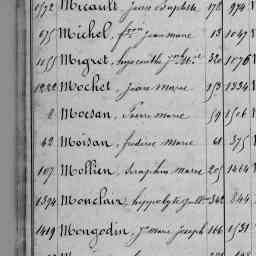 1572 Micault, Jean Baptiste 178 974
975 Michel, fçois jean marie 13 1047
1055 Migret, hyacinthe 320 1076
1222 Mochet, Jean marie 153 1334
2 Moësan, Pierre marie 59 1506
62 Moisan, frederic marie 61 375
107 Mollien, Seraphin marie 205 1464
1394 Monclair, hyppolyte 342 844
1419 Mongodin, jn marie joseph 166 1531